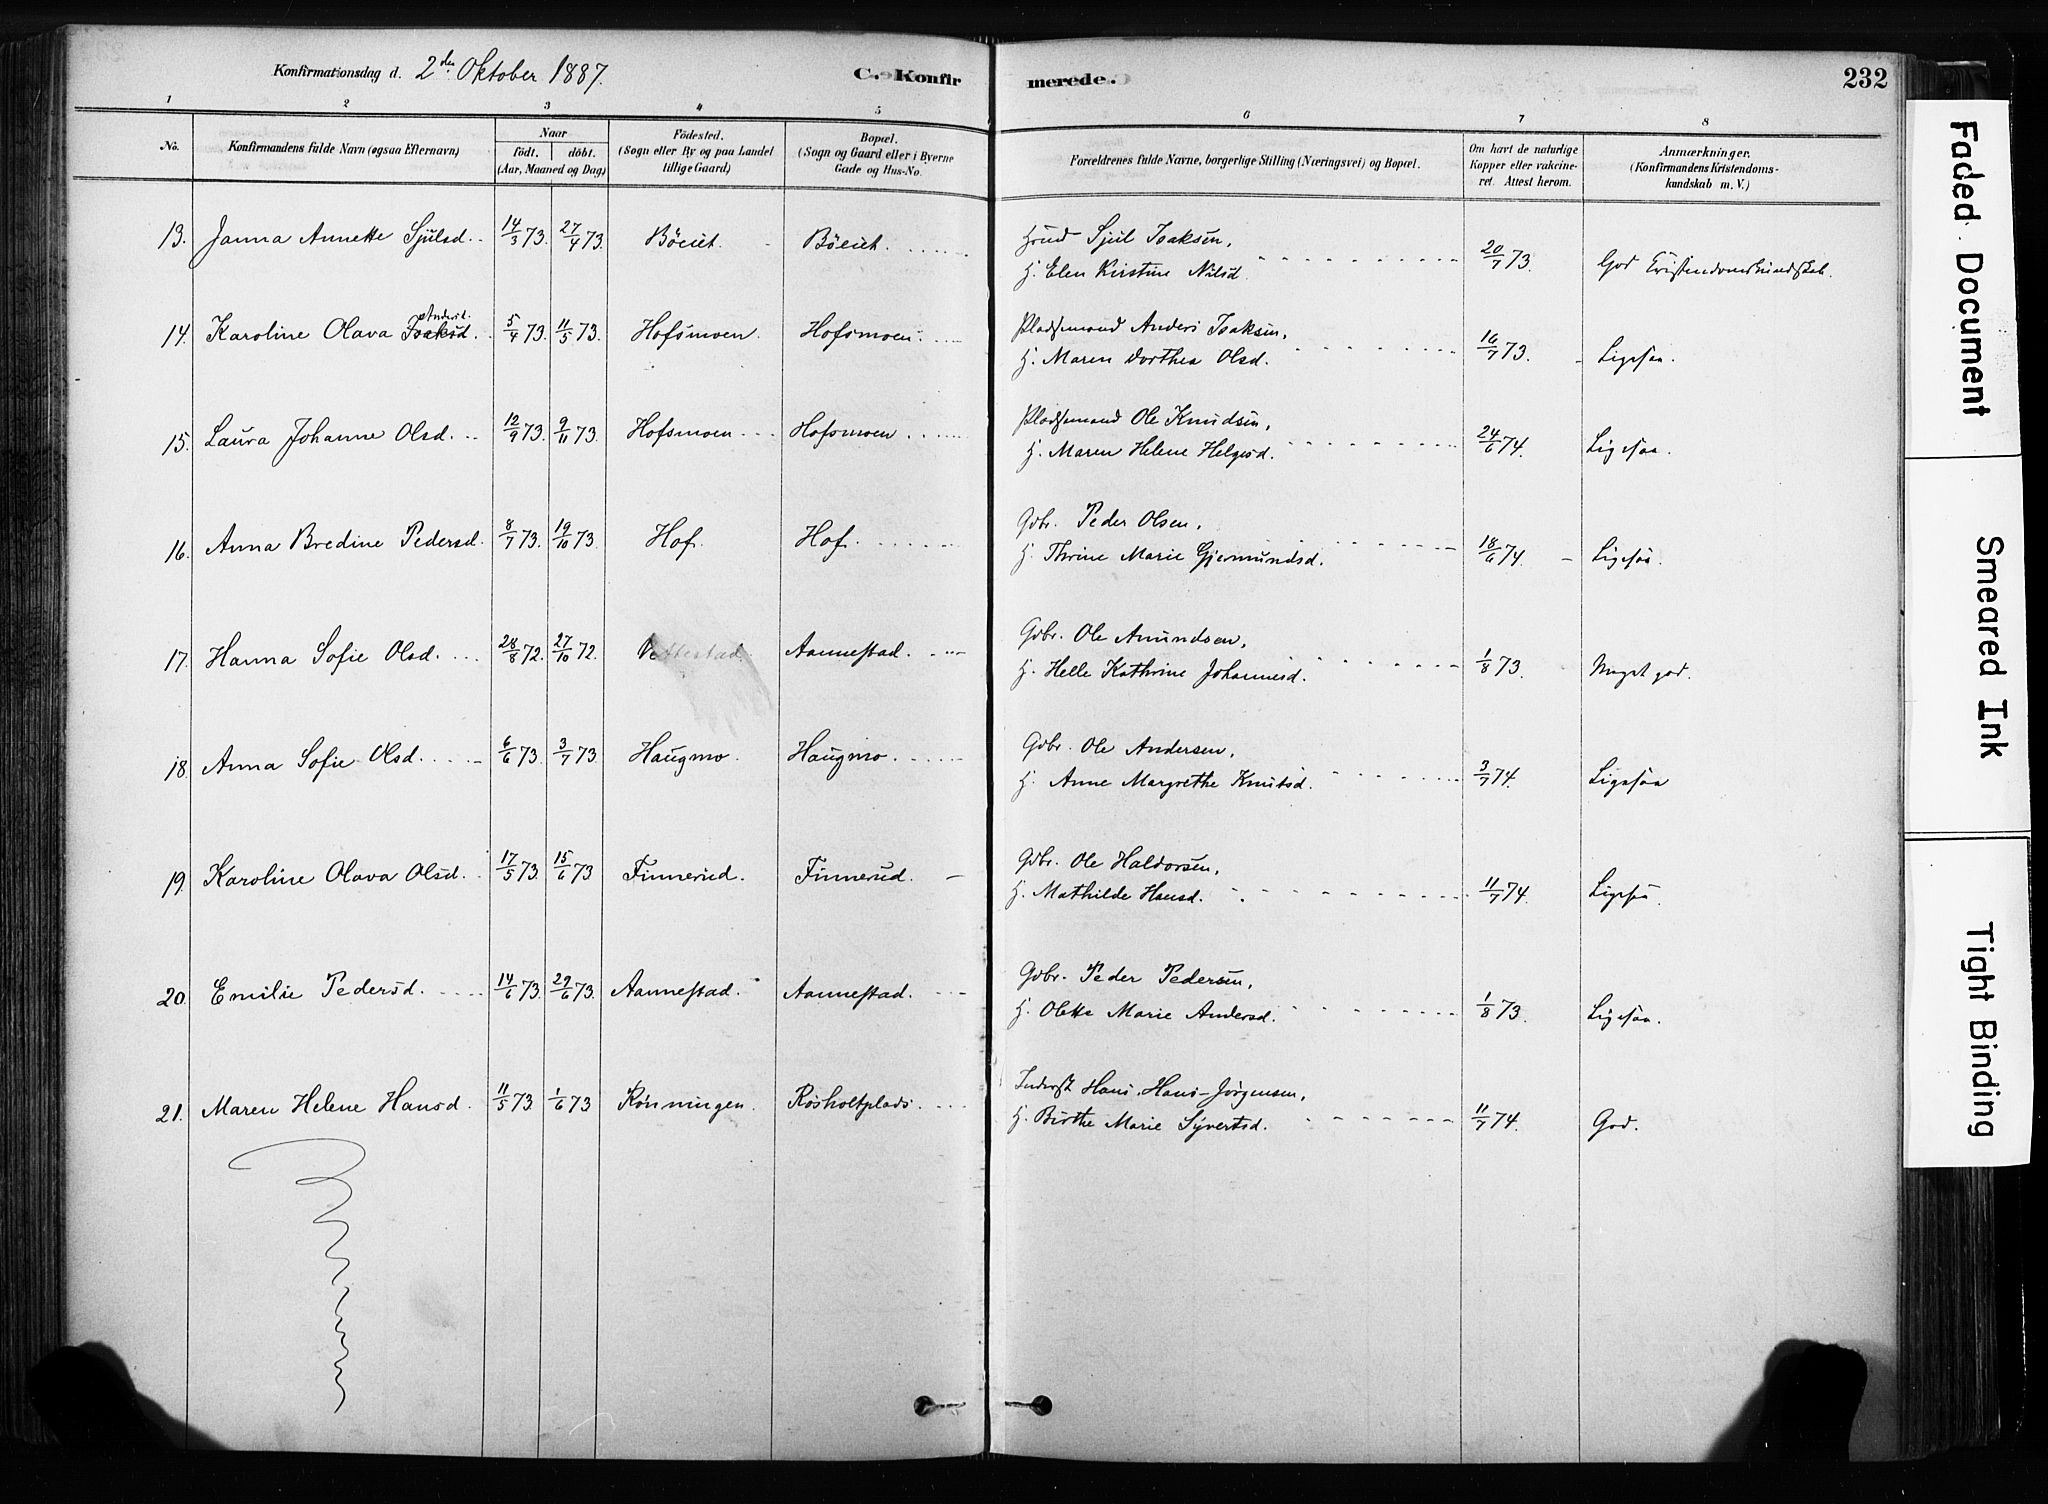 Konfirmationsdag d. 2den Oktober 1887. C. Konfirmerede. 232
1 2 3 4 5 6 7 8
No. Konfirmandens fulde Navn (ogsaa Efternavn) Naar födt. döbt. (Aar, Maaned og Dag) Födested. (Sogn eller By og paa Landet tillige Gaard) Bopæl. (Sogn og Gaard eller i Byerne Gade og Hus-No. Forældrenes fulde Navne, borgerlige Stilling (Næringsvei) og Bopæl. Om havt de naturlige Kopper eller vakcineret. Attest herom. Anmærkninger. (Konfirmandens Kristendomskundskab m. V.)
13. Janna Annette Sjulsd. 14/3 73. 27/4 73. Böeiet. Böeiet. Hmd Sjul Isaksen,
H. Elen Kirstine Nilsd. 20/7 73. God Kristendomskundskab.
14. Karoline Olava Isaksd. Andersd. 5/4 73. 11/5 73. Hofsmoen. Hofsmoen. Pladsemand Anders Isaksen,
H. Maren Dorthea Olsd. 16/7 73. Ligesaa.
15. Laura Johanne Olsd. 12/9 73. 9/11 73. Hofsmoen Hofsmoen. Pladsemand Ole Knudsen,
H. Maren Helene Helgesd. 24/6 74. Ligesaa.
16. Anna Bredine Pedersd. 8/7 73. 19/10 73. Hof. Hof. Gdbr. Peder Olsen,
H. Thrine Marie Gjermundsd. 18/6 74. Ligesaa.
17. Hanna Sofie Olsd. 28/8 72. 27/10 72. Vettestad Aannestad. Gdbr. Ole Amundsen,
H. Helle Kathrine Johannesd. 1/8 73. Meget god.
18. Anna Sofie Olsd. 6/6 73. 3/7 73. Haugmo. Haugmo. Gdbr. Ole Andersen,
H. Anne Margrethe Knutsd. 3/7 74. Ligesaa
19. Karoline Olava Olsd. 17/5 73. 15/6 73 Finnerud. Finnerud. Gdbr. Ole Haldorsen,
H. Mathilde Hansd. 11/7 74. Ligesaa.
20. Emilie Pedersd. 14/6 73. 29/6 73. Aannestad. Aannestad. Gdbr. Peder Pedersen,
H. Olette Marie Andersd. 1/8 73. Ligesaa.
21. Maren Helene Hansd. 11/5 73. 1/6 73 Rönningen. Rösholtplads. Inderst Hans Hans-Jörgensen,
H. Birthe Marie Syvertsd. 11/7 74. God.
Faded Document
Smeared Ink
Tight Binding